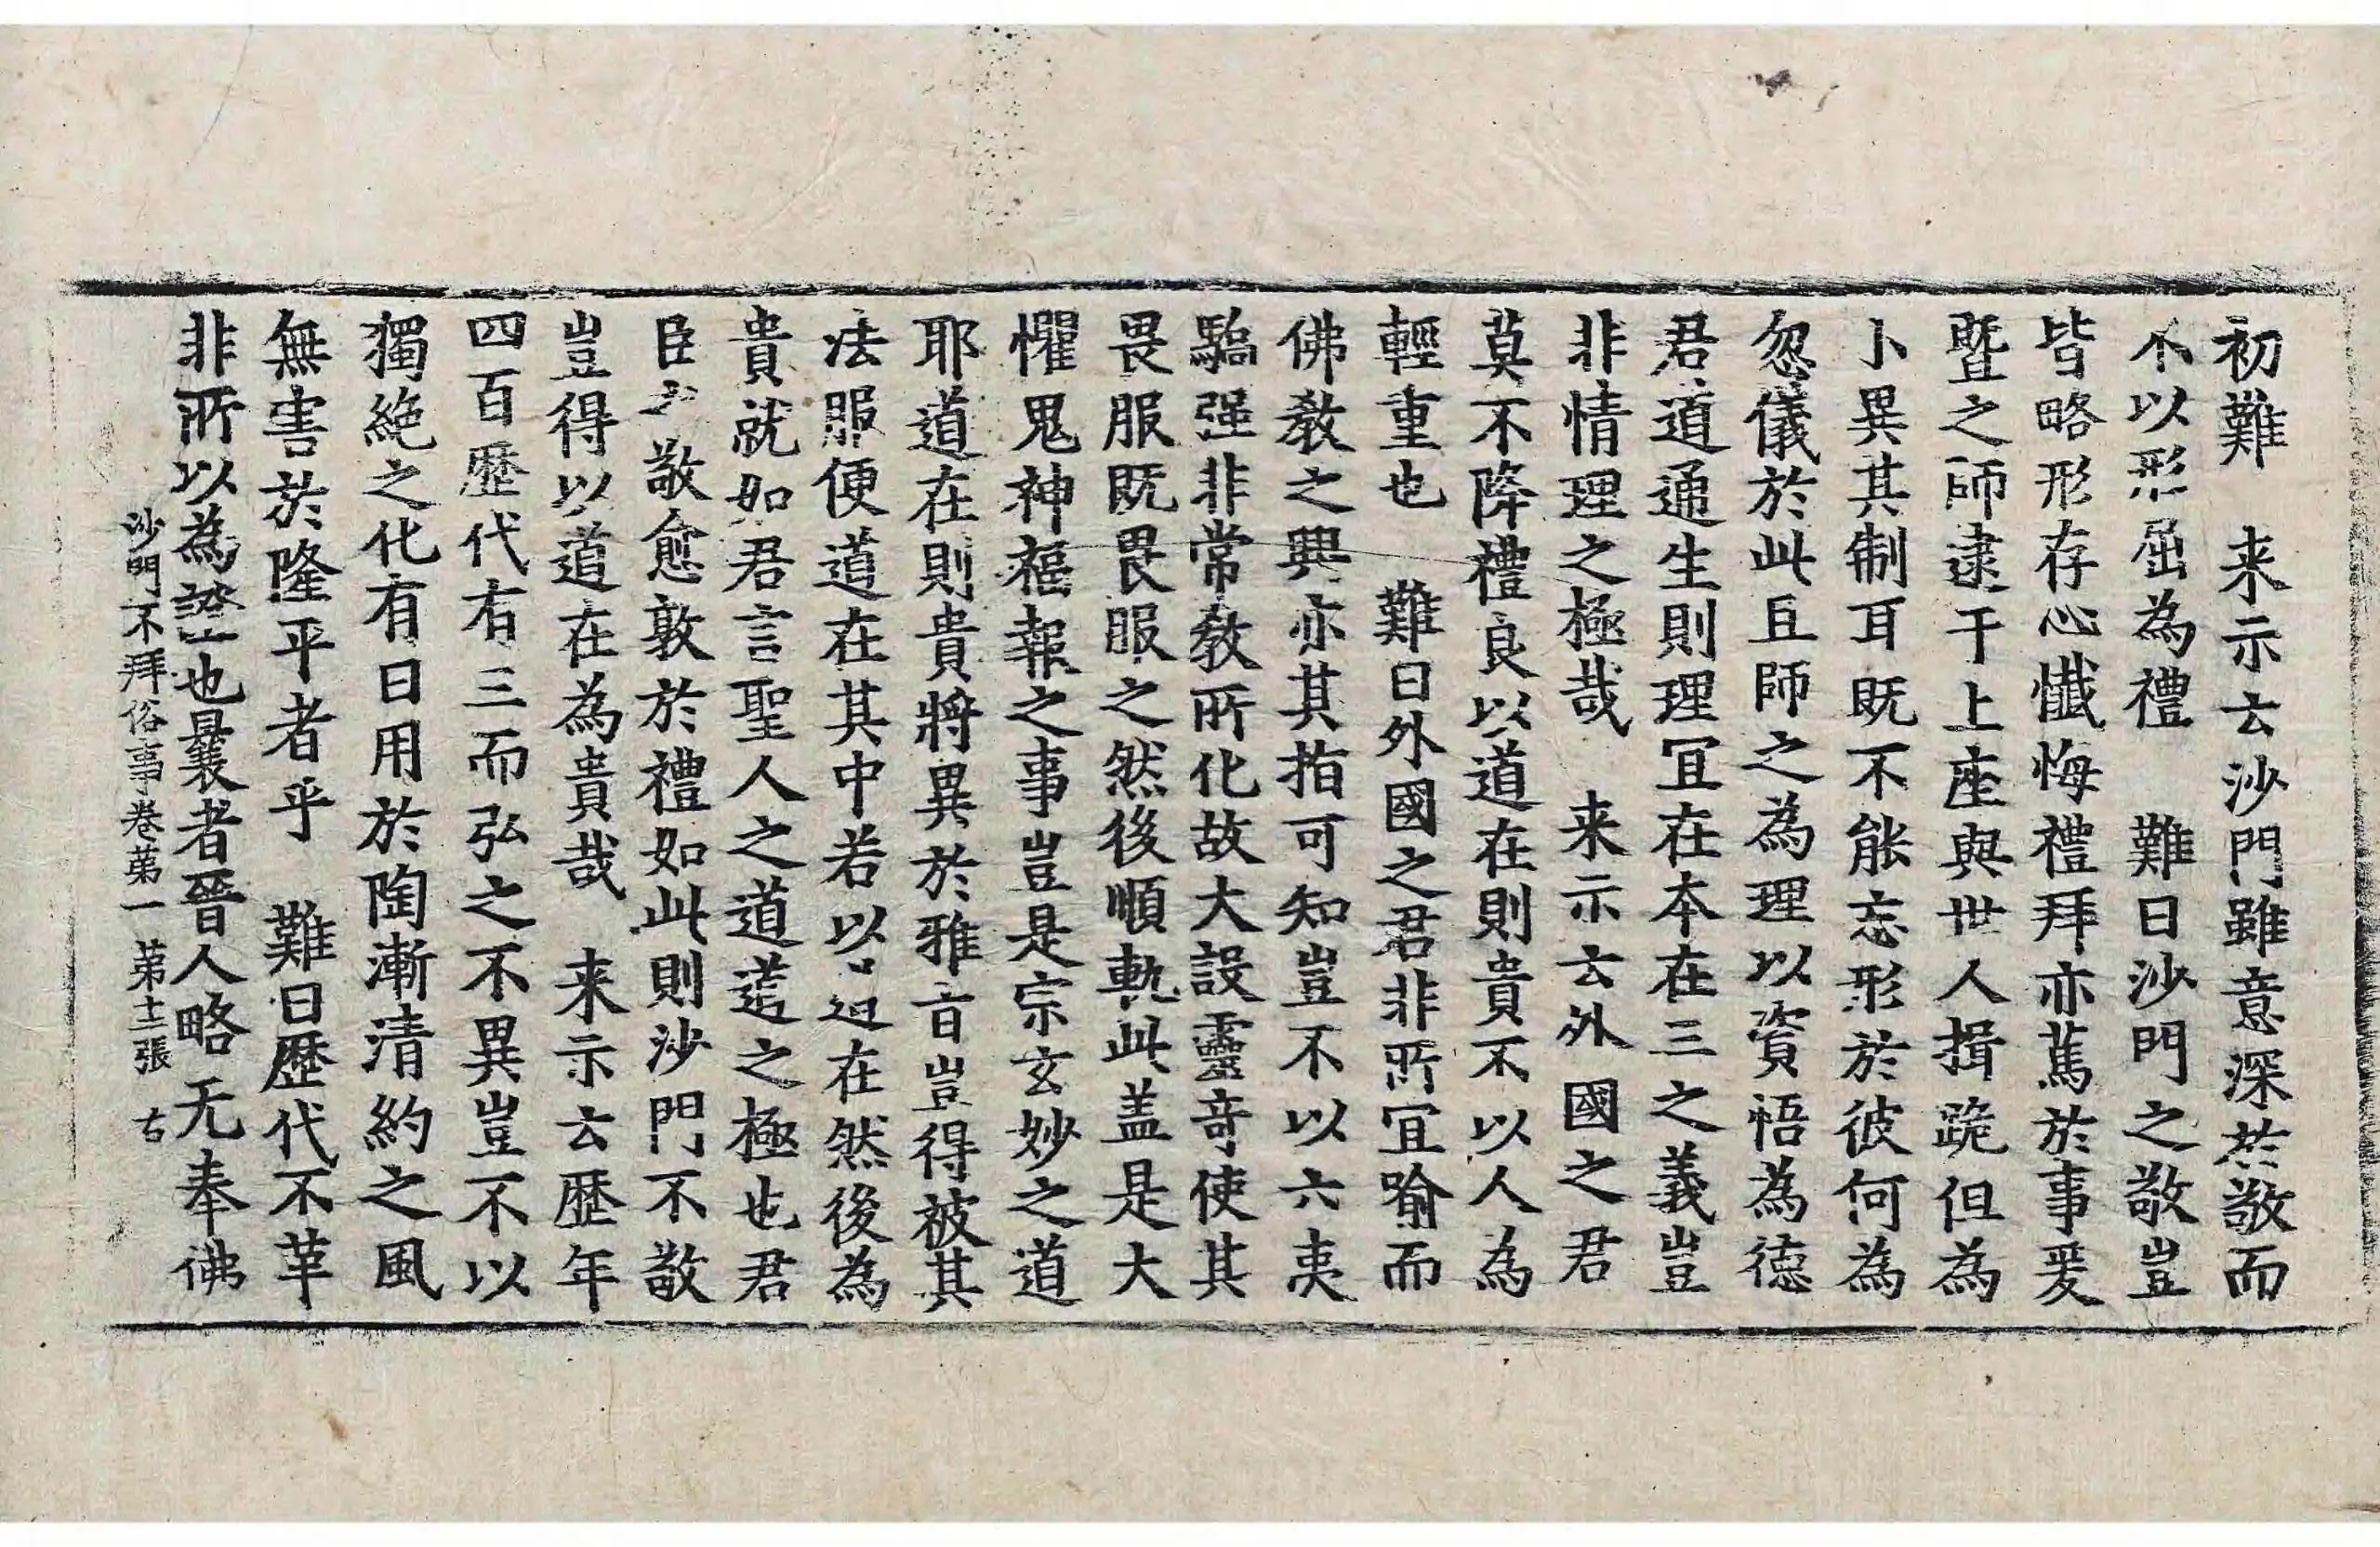 初難　来示云沙門雖意深於敬而
不以形屈為禮　難曰沙門之敬豈
皆略形存心懺悔禮拜亦篤於事爰
暨之師逮于上座與世人揖跪但為
小異其制耳既不能忘形於彼何為
忽儀於此且師之為理以資悟為徳
君道通生則理冝在本在三之義豈
非情理之極哉　来示云外國之君
莫不降禮良以道在則貴不以人為
輕重也　難曰外國之君非所冝喻而
佛教之興亦其指可知豈不以六夷
驕强非常教所化故大設靈竒使其
畏服既畏服之然後順軌此盖是大
懼鬼神福報之事豈是宗玄妙之道
耶道在則貴將異於雅音豈得被其
法服便道在其中若以道在然後為
貴就如君言聖人之道道之極也君
臣之敬愈敦於禮如此則沙門不敬
豈得以道在為貴哉　来示云歴年
四百歴代有三而弘之不異豈不以
獨絶之化有日用於陶漸清約之風
無害於隆平者乎　難曰歴代不革
非所以為證也曩者晉人略无奉佛
沙門不拜俗事卷苐一　苐十二張　右